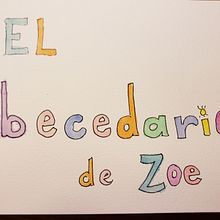 EL
becedario
de Zoe